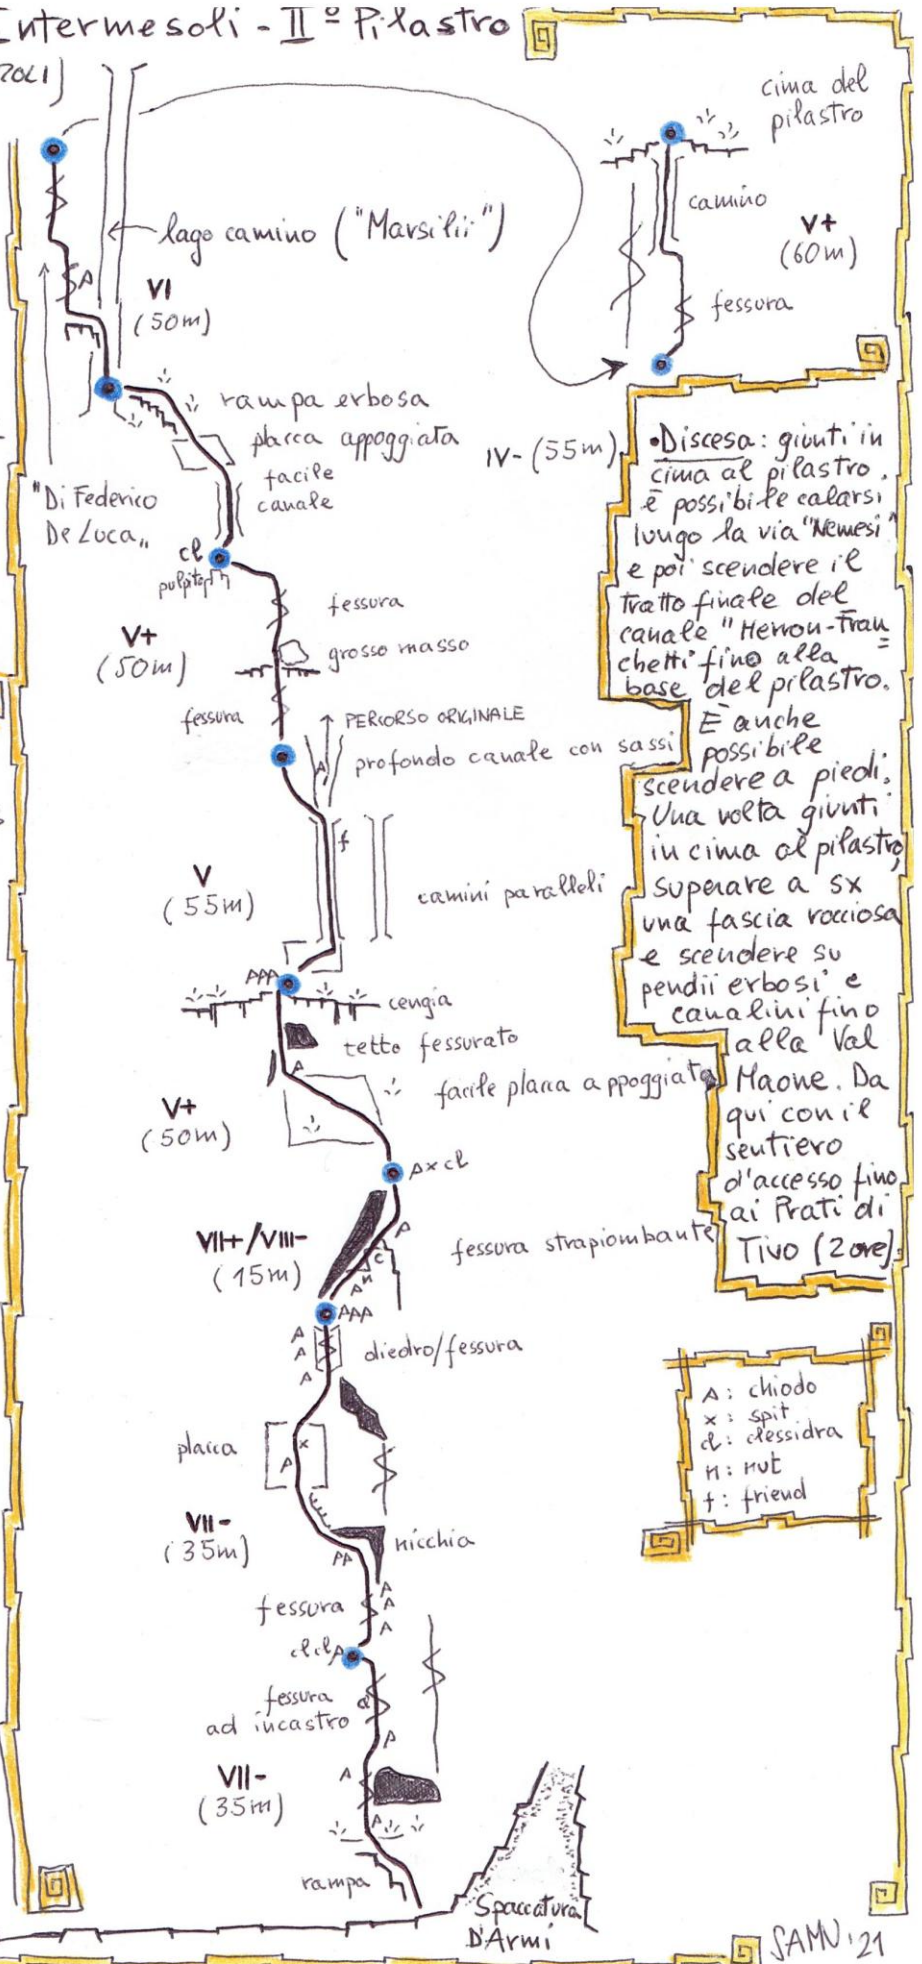 Intermesoli - IIº Pilastro
cima del
pilastro
camino
V+
(60m)
fessura
lago camino ("Marsilii")
VI
(50m)
rampa erbosa
placca appoggiata
IV- (55m)
facile
canale
"Di Federico
De Luca"
cl
pulpito
fessura
V+
(50m)
grosso masso
fessura
PERCORSO ORIGINALE
profondo canale con sassi
A
f
V
(55m)
camini paralleli
AAA
cengia
tetto fessurato
A
facile placca appoggiata
V+
(50m)
A x cl
VII+/VIII-
(15m)
fessura strapiombante
A
C
n
A
AAA
A
A
A
diedro/fessura
placca
x
A
VII-
(35m)
nicchia
AA
fessura
A
A
A
cl cl A
fessura
ad incastro
cl
A
VII-
(35m)
A
A
rampa
Spaccatura
D'Armi
•Discesa: giunti in
cima al pilastro,
è possibile calarsi
lungo la via "Nemesi"
e poi scendere il
tratto finale del
canale "Herron-Fran=
chetti" fino alla
base del pilastro.
È anche
possibile
scendere a piedi.
Una volta giunti
in cima al pilastro,
superare a sx
una fascia rocciosa
e scendere su
pendii erbosi e
canalini fino
alla Val
Maone. Da
qui con il
sentiero
d'accesso fino
ai Prati di
Tivo (2 ore).
A: chiodo
x: spit
cl: clessidra
n: nut
f: friend
SAMU '21